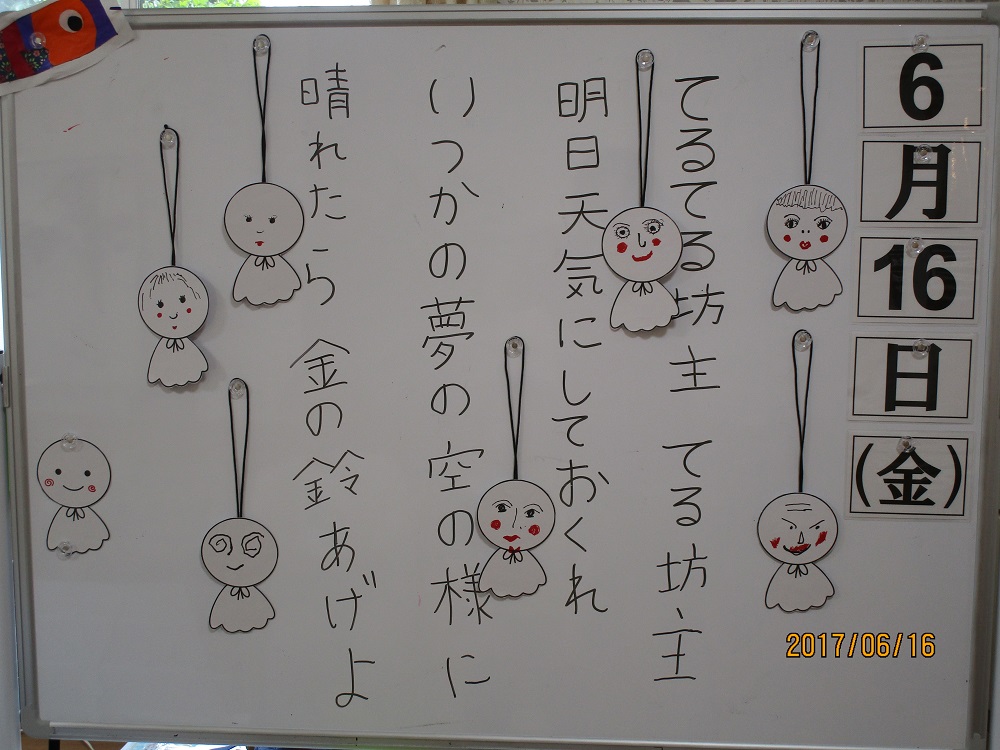 6
月
16
日
(金)
てるてる坊主 てる坊主
明日天気にしておくれ
いつかの夢の空の様に
晴れたら 金の鈴あげよ
2017/06/16